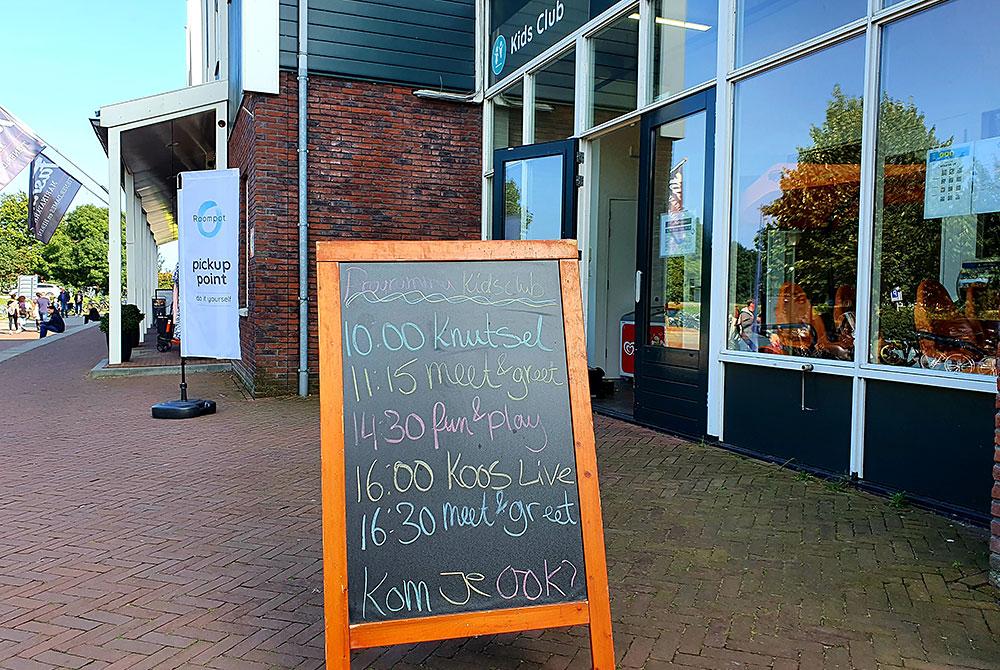 Kids Club
Roompot
pickup
point
do it yourself
Programma Kidsclub
10:00 Knutsel
11:15 meet & greet
14:30 fun & play
16:00 Koos Live
16:30 meet & greet
Kom je ook?